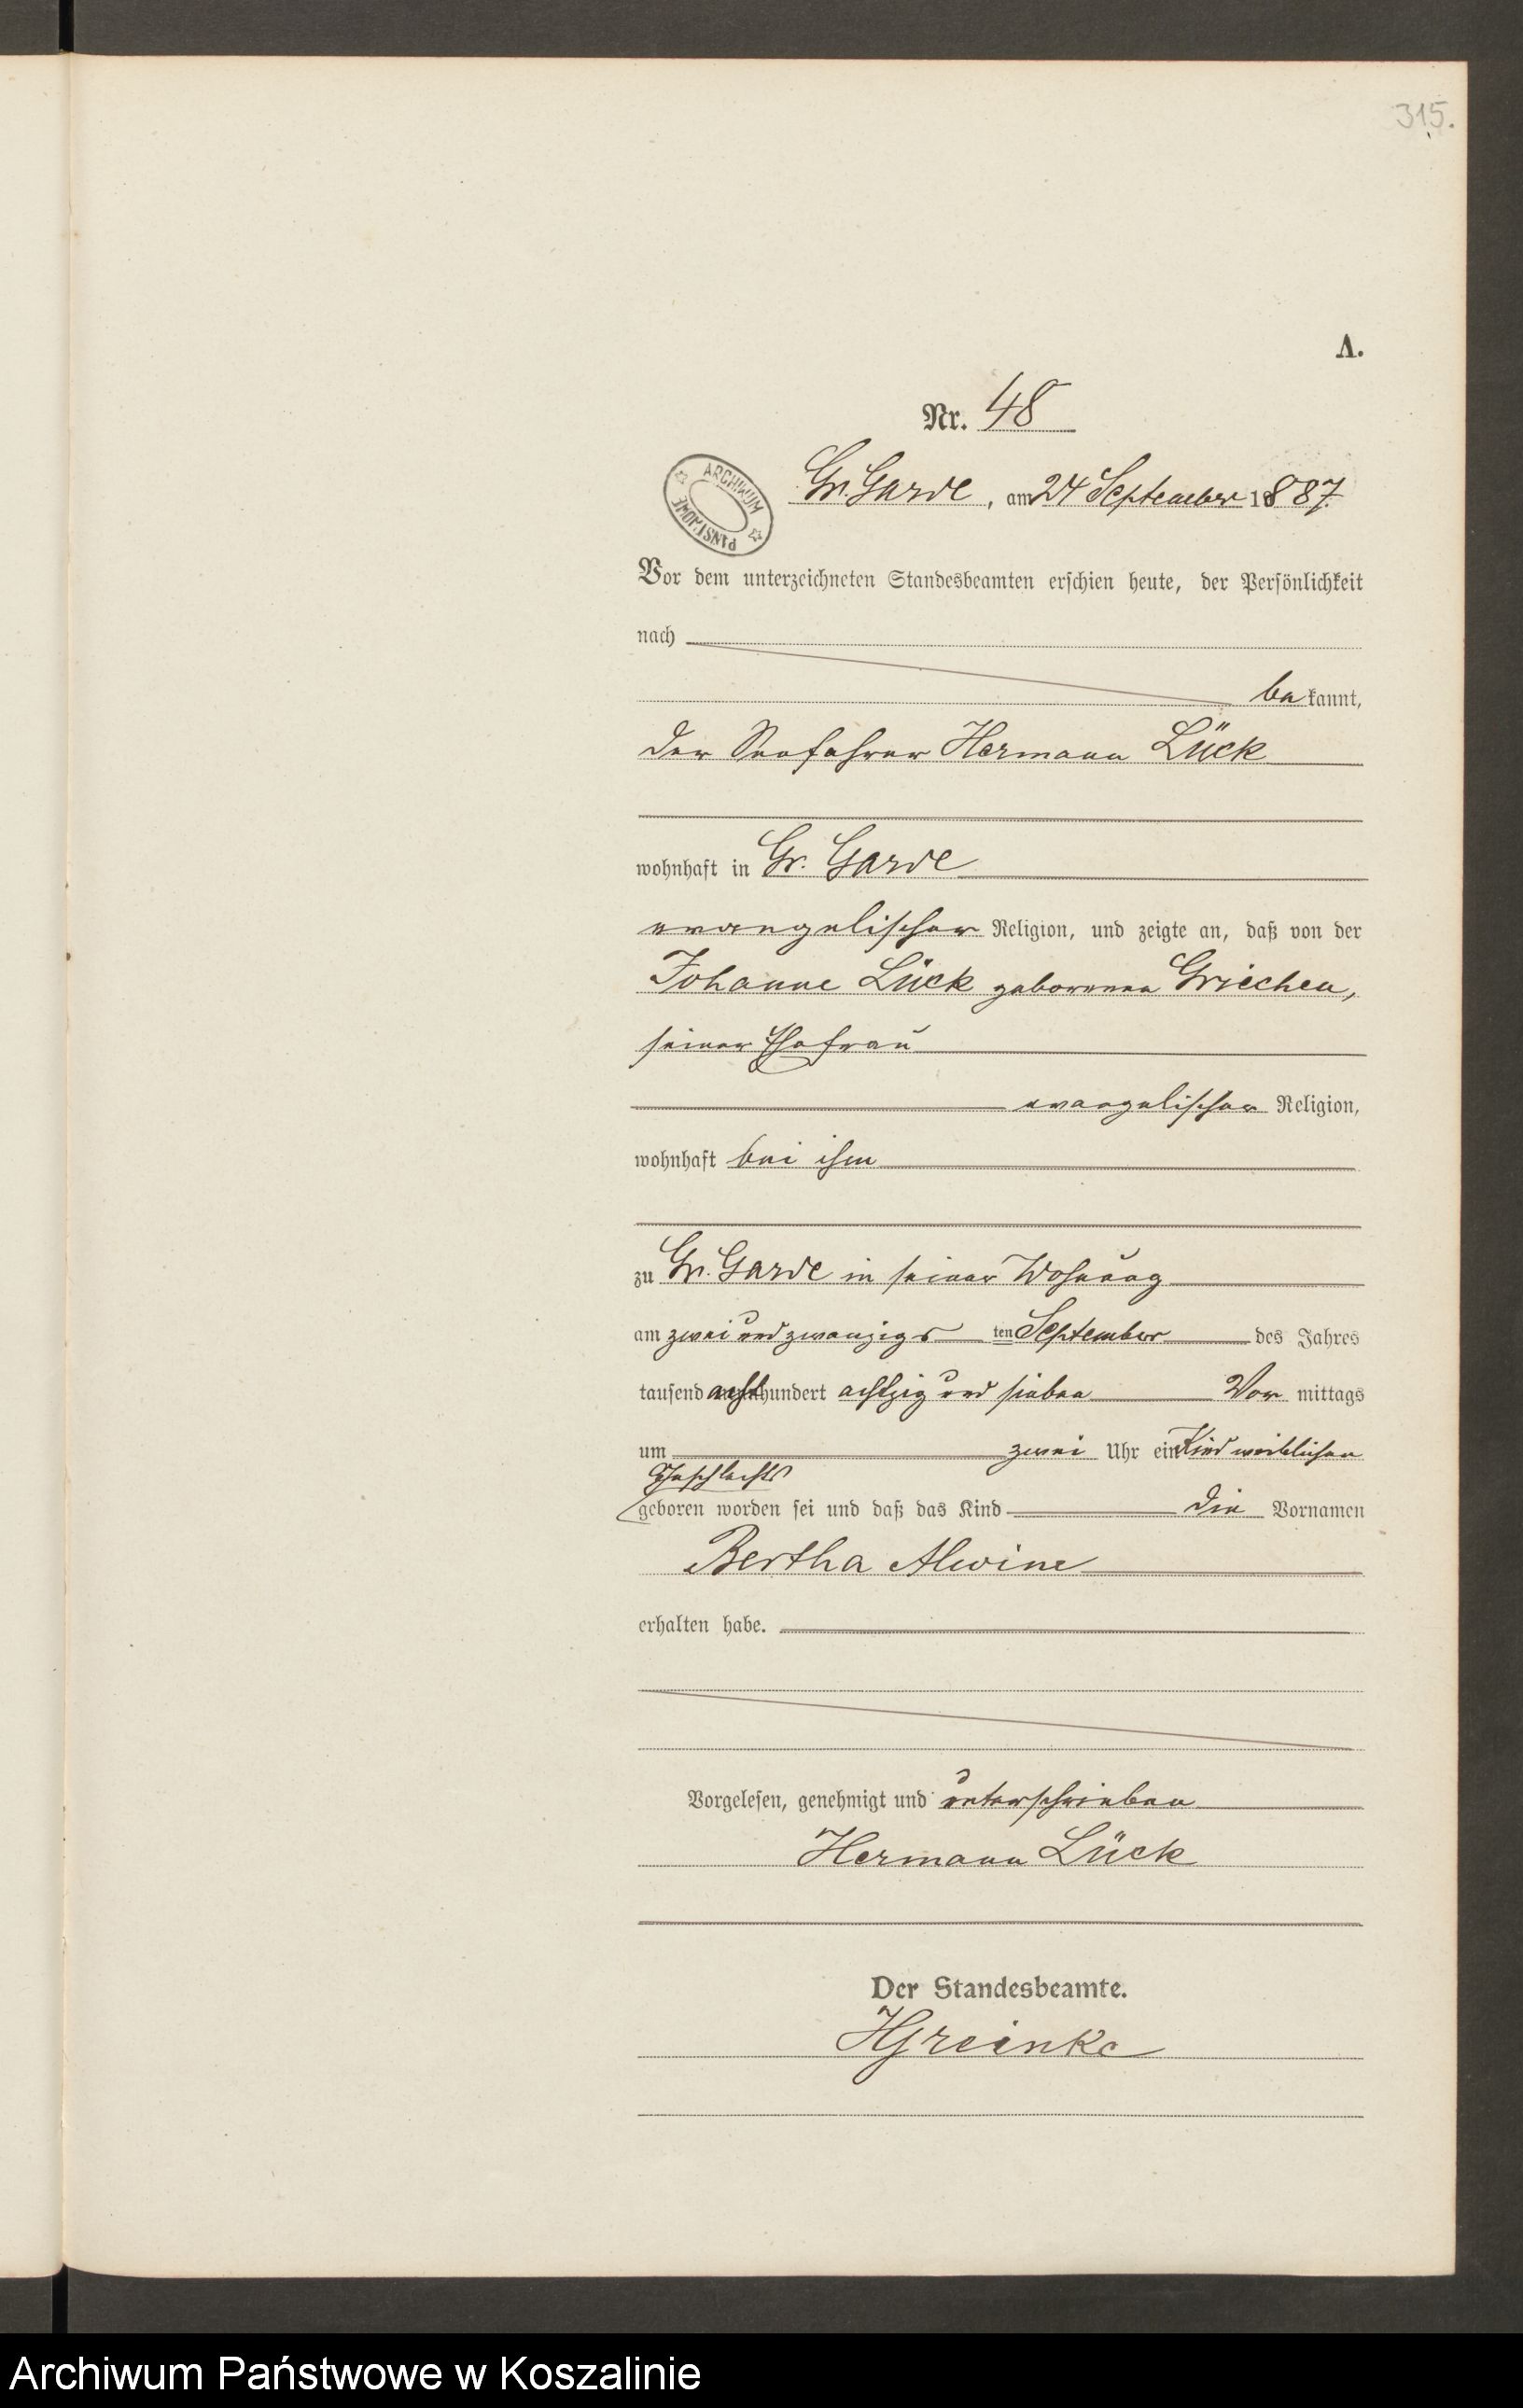 315.
A.
Nr. 48
ARCHIWUM PAŃSTWOWE
Gr. Garde, am 24 September 1887.
Vor dem unterzeichneten Standesbeamten erschien heute, der Persönlichkeit
nach
bekannt,
der Seefahrer Hermann Lück
wohnhaft in Gr. Garde
evangelischer Religion, und zeigte an, daß von der
Johanne Lück geborenen Griechen,
seiner Ehefrau
evangelischer Religion,
wohnhaft bei ihm
zu Gr. Garde in seiner Wohnung
am zwei und zwanzigs ten September des Jahres
tausend acht hundert achtzig und sieben Vor mittags
um zwei Uhr ein Kind weiblichen
Geschlechts
geboren worden sei und daß das Kind die Vornamen
Bertha Alwine
erhalten habe.
Vorgelesen, genehmigt und unterschrieben
Hermann Lück
Der Standesbeamte.
HGreinke
Archiwum Państwowe w Koszalinie